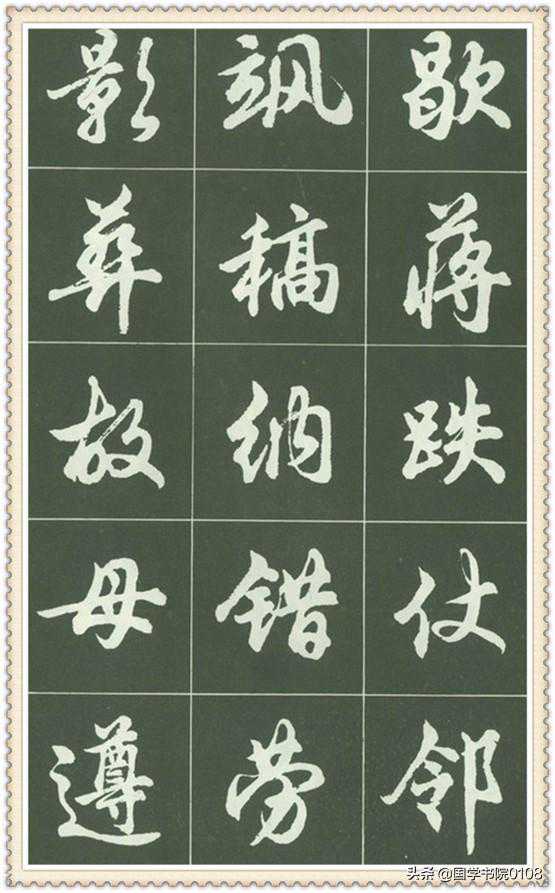 歇蒋跌仗邻
飒稿纳错劳
影葬故母遵
头条@国学书院0108